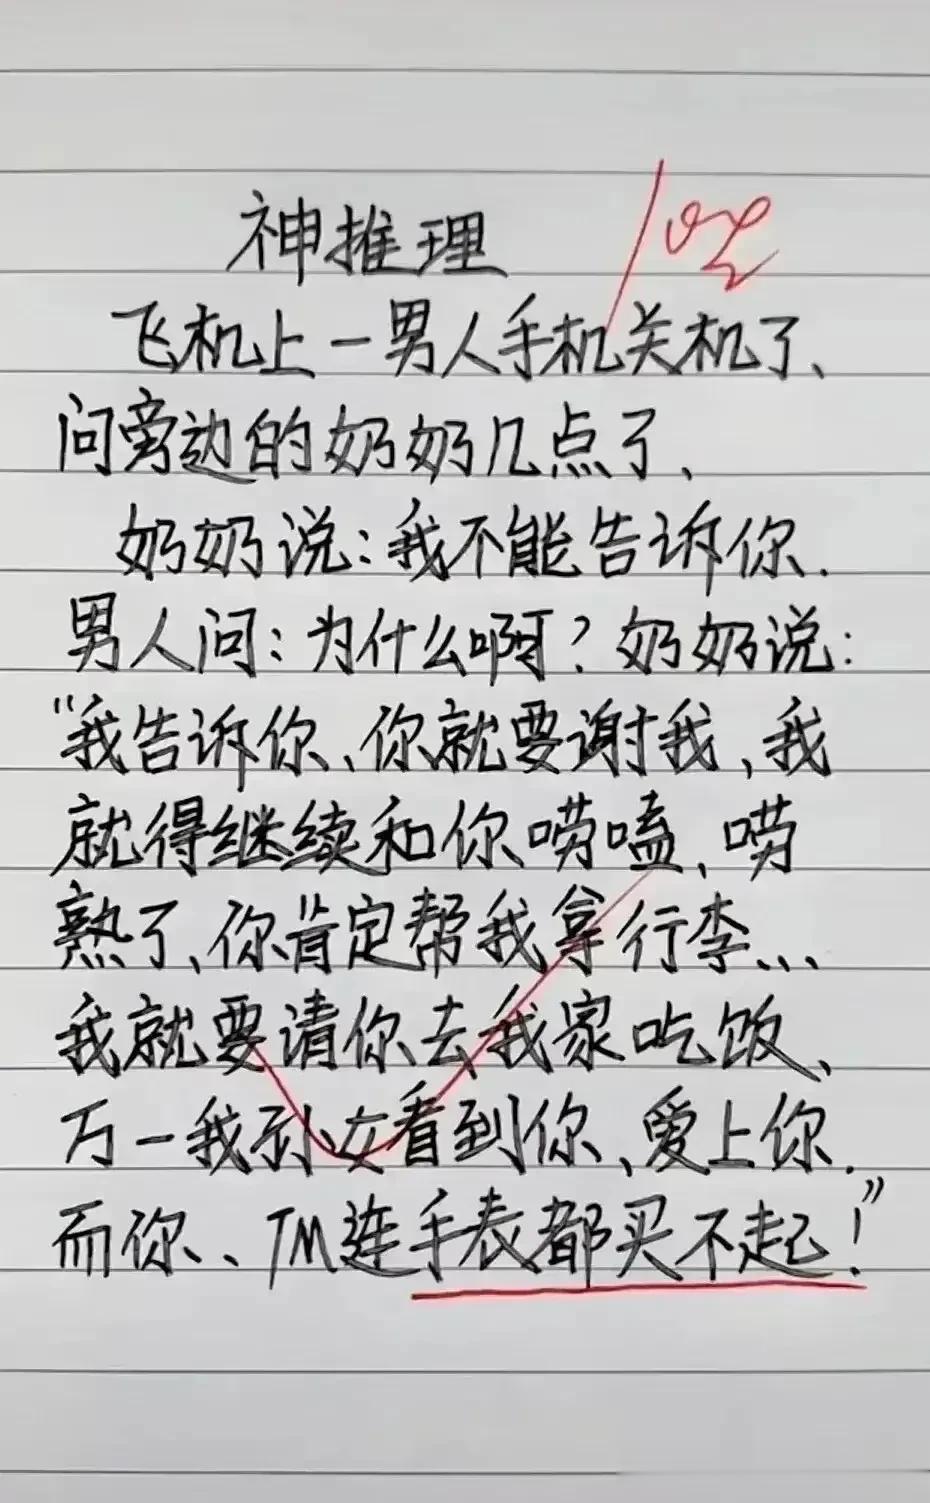 神推理
飞机上一男人手机关机了、
问旁边的奶奶几点了、
奶奶说:我不能告诉你.
男人问:为什么啊?奶奶说:
“我告诉你、你就要谢我、我
就得继续和你唠嗑、唠
熟了、你肯定帮我拿行李、、、
我就要请你去我家吃饭、
万一我孙女看到你、爱上你.
而你、TM连手表都买不起!”